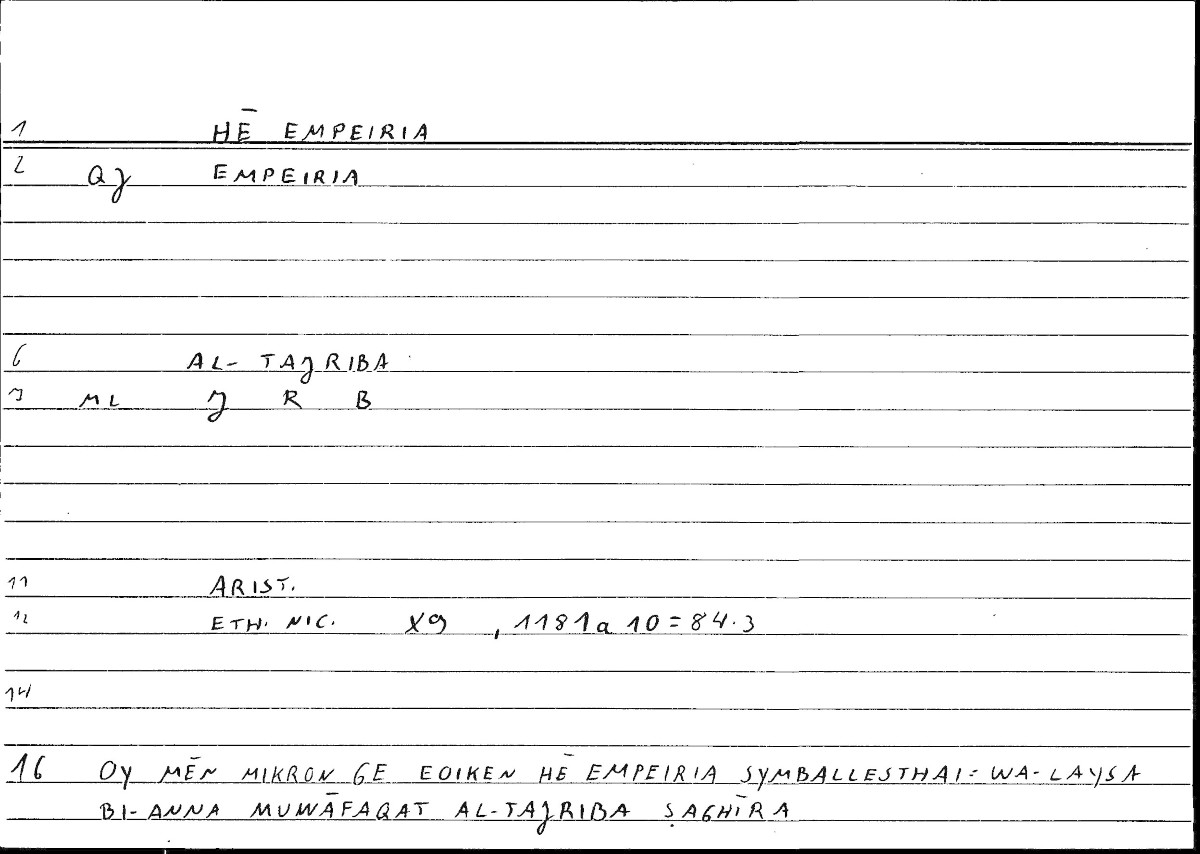 1 HĒ EMPEIRIA
2 QJ EMPEIRIA
6 AL-TAJRIBA
7 ML J R B
11 ARIST.
12 ETH. NIC. X9 , 1181a 10 = 84.3
14
16 OY MĒN MIKRON GE EOIKEN HĒ EMPEIRIA SYMBALLESTHAI = WA-LAYSA
BI-ANNA MUWĀFAQAT AL-TAJRIBA ṢAGHĪRA